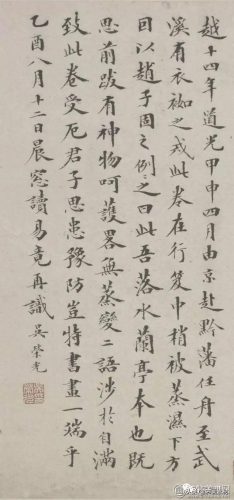 越十四年道光甲申四月由京赴黔藩任舟至武
溪有衣袽之戒此卷在行笈中稍被蒸濕下方
因以趙子固之例之曰此吾落水蘭亭本也既
思前跋有神物呵護畧無蒸變二語涉於自滿
致此卷受厄君子思患豫防豈特書畫一端乎
乙酉八月十二日晨窓讀易竟再識吳榮光